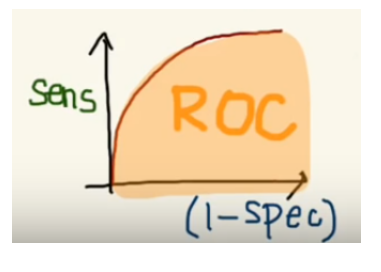 sens
ROC
(1-spec)